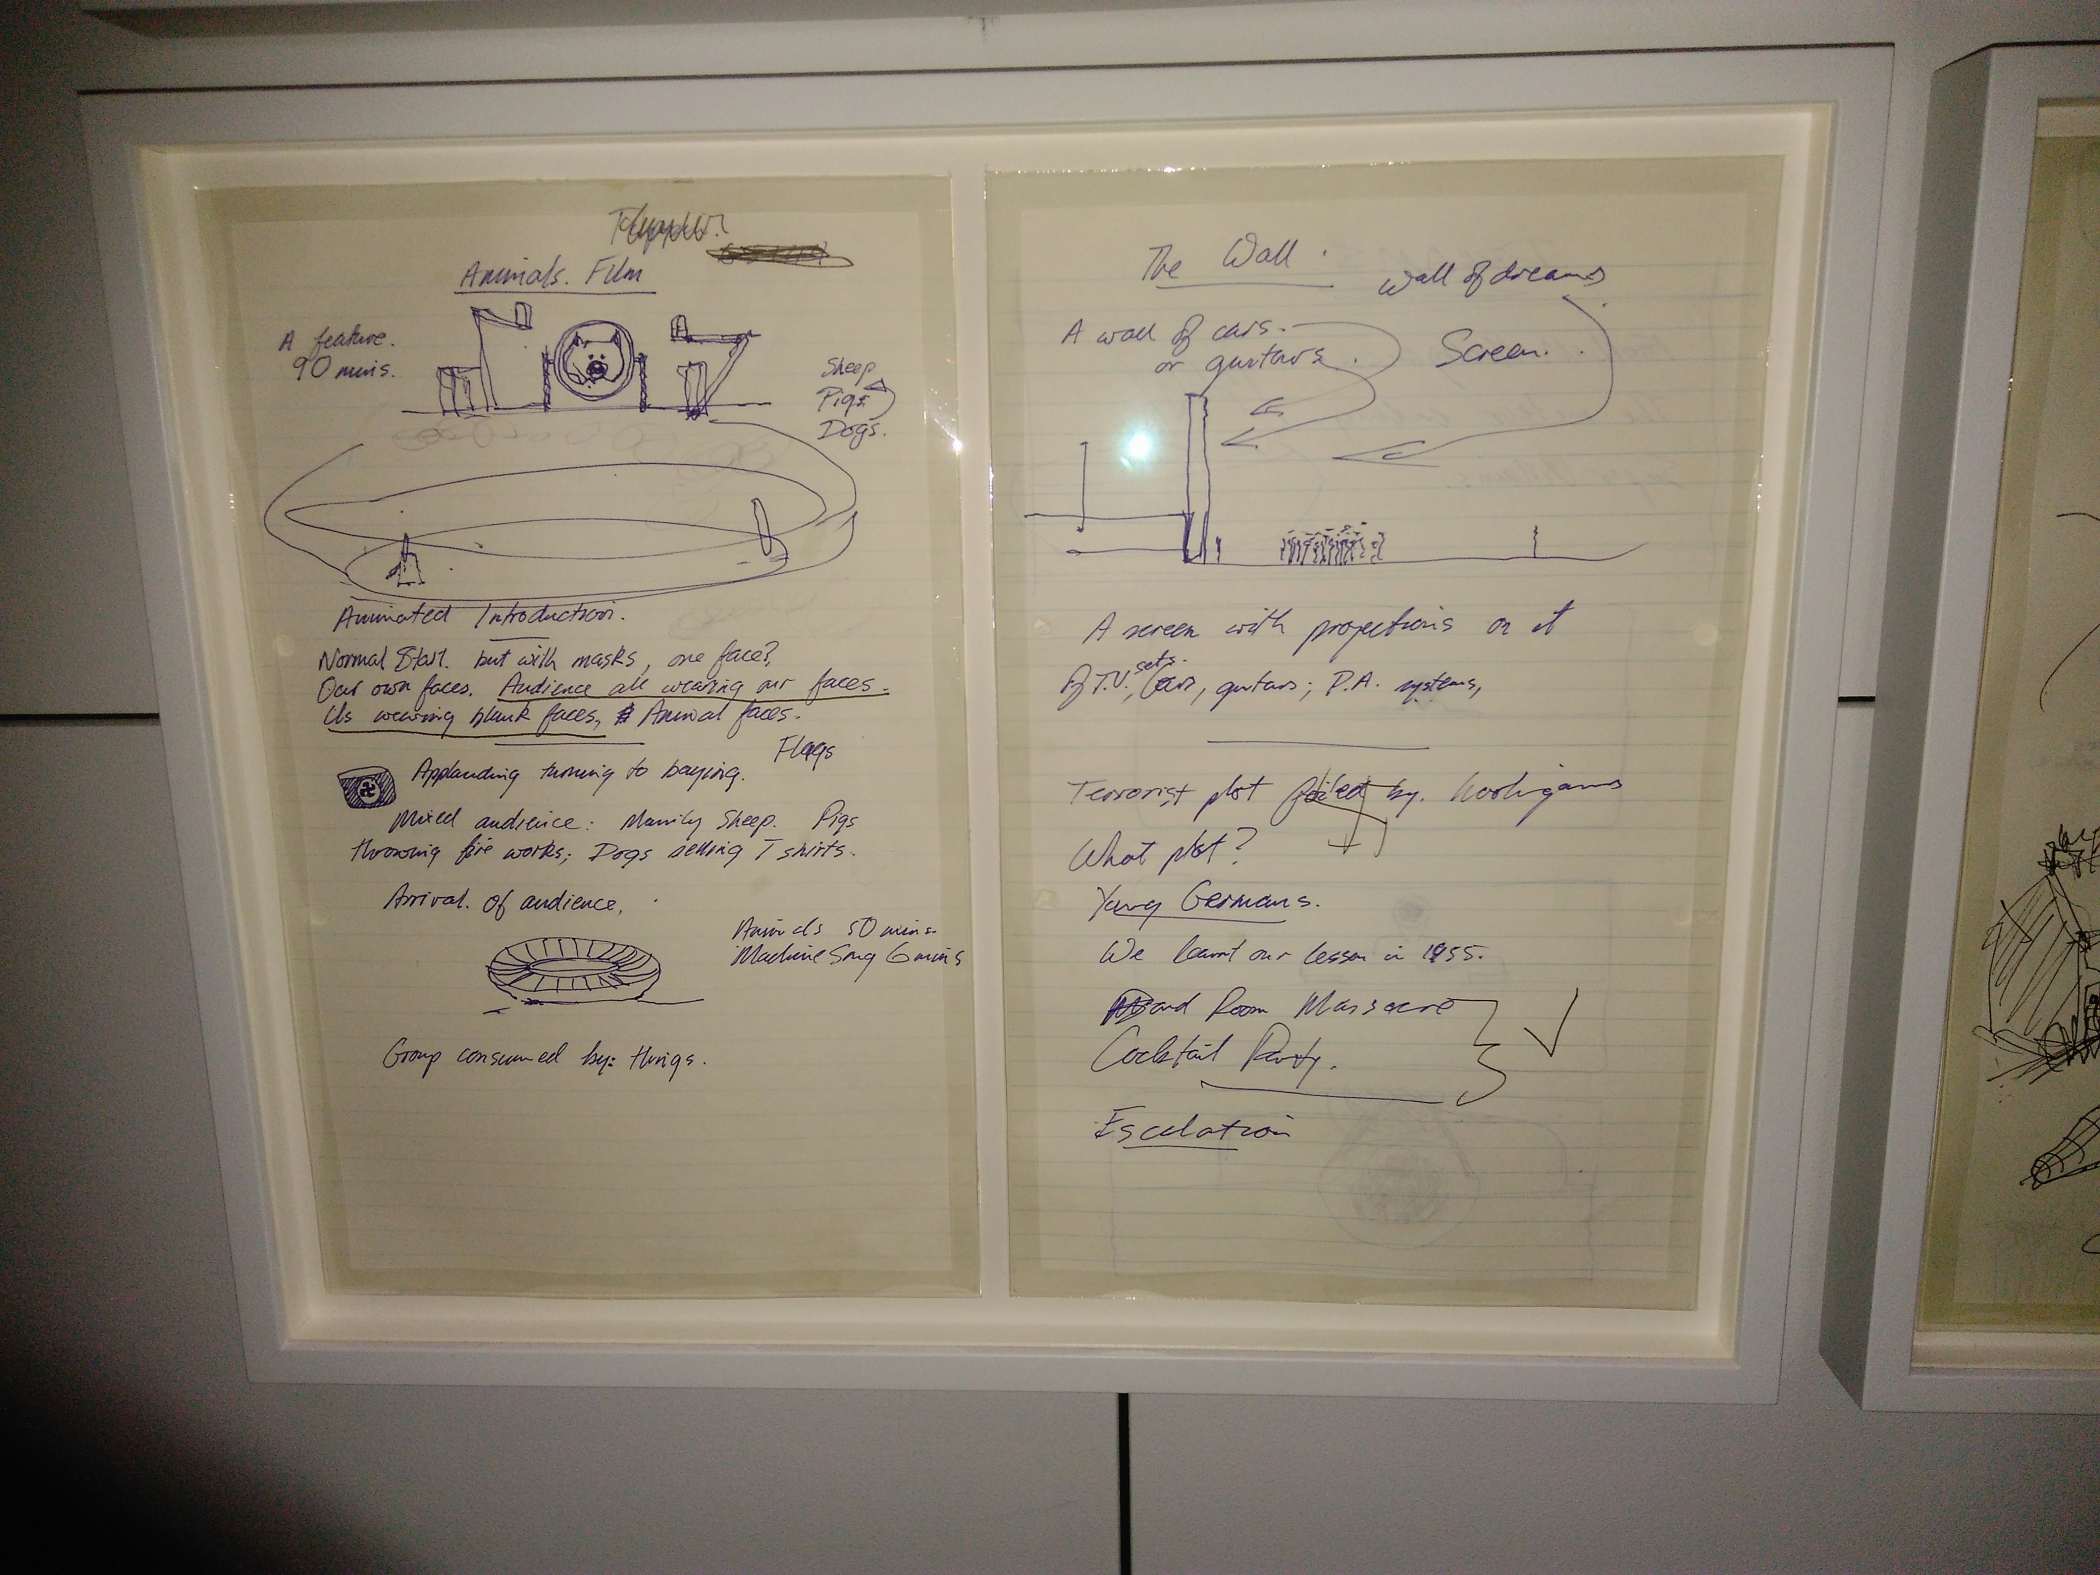 Animals. Film
A feature.
90 mins.
Sheep
Pigs
Dogs.
Animated Introduction.
Normal Start. but with masks, one face?,
Our own faces. Audience all wearing our faces.
Us wearing blank faces, Animal faces.
Flags
Applauding turning to baying.
Mixed audience: Mainly Sheep. Pigs
throwing fire works; Dogs selling T shirts.
Arrival. Of audience,
Animals 50 mins.
Machine Song 6 mins
Group consumed by: things.
The Wall.
Wall of dreams
A wall of cars.
or guitars.
Screen.
A screen with projections on it
Of T.V. sets, Cars, guitars; P.A. systems,
Terrorist plot foiled by. hooligans
What plot?
Young Germans.
We learnt our lesson in 1955.
Board Room Massacre
Cocktail Party.
Escalation